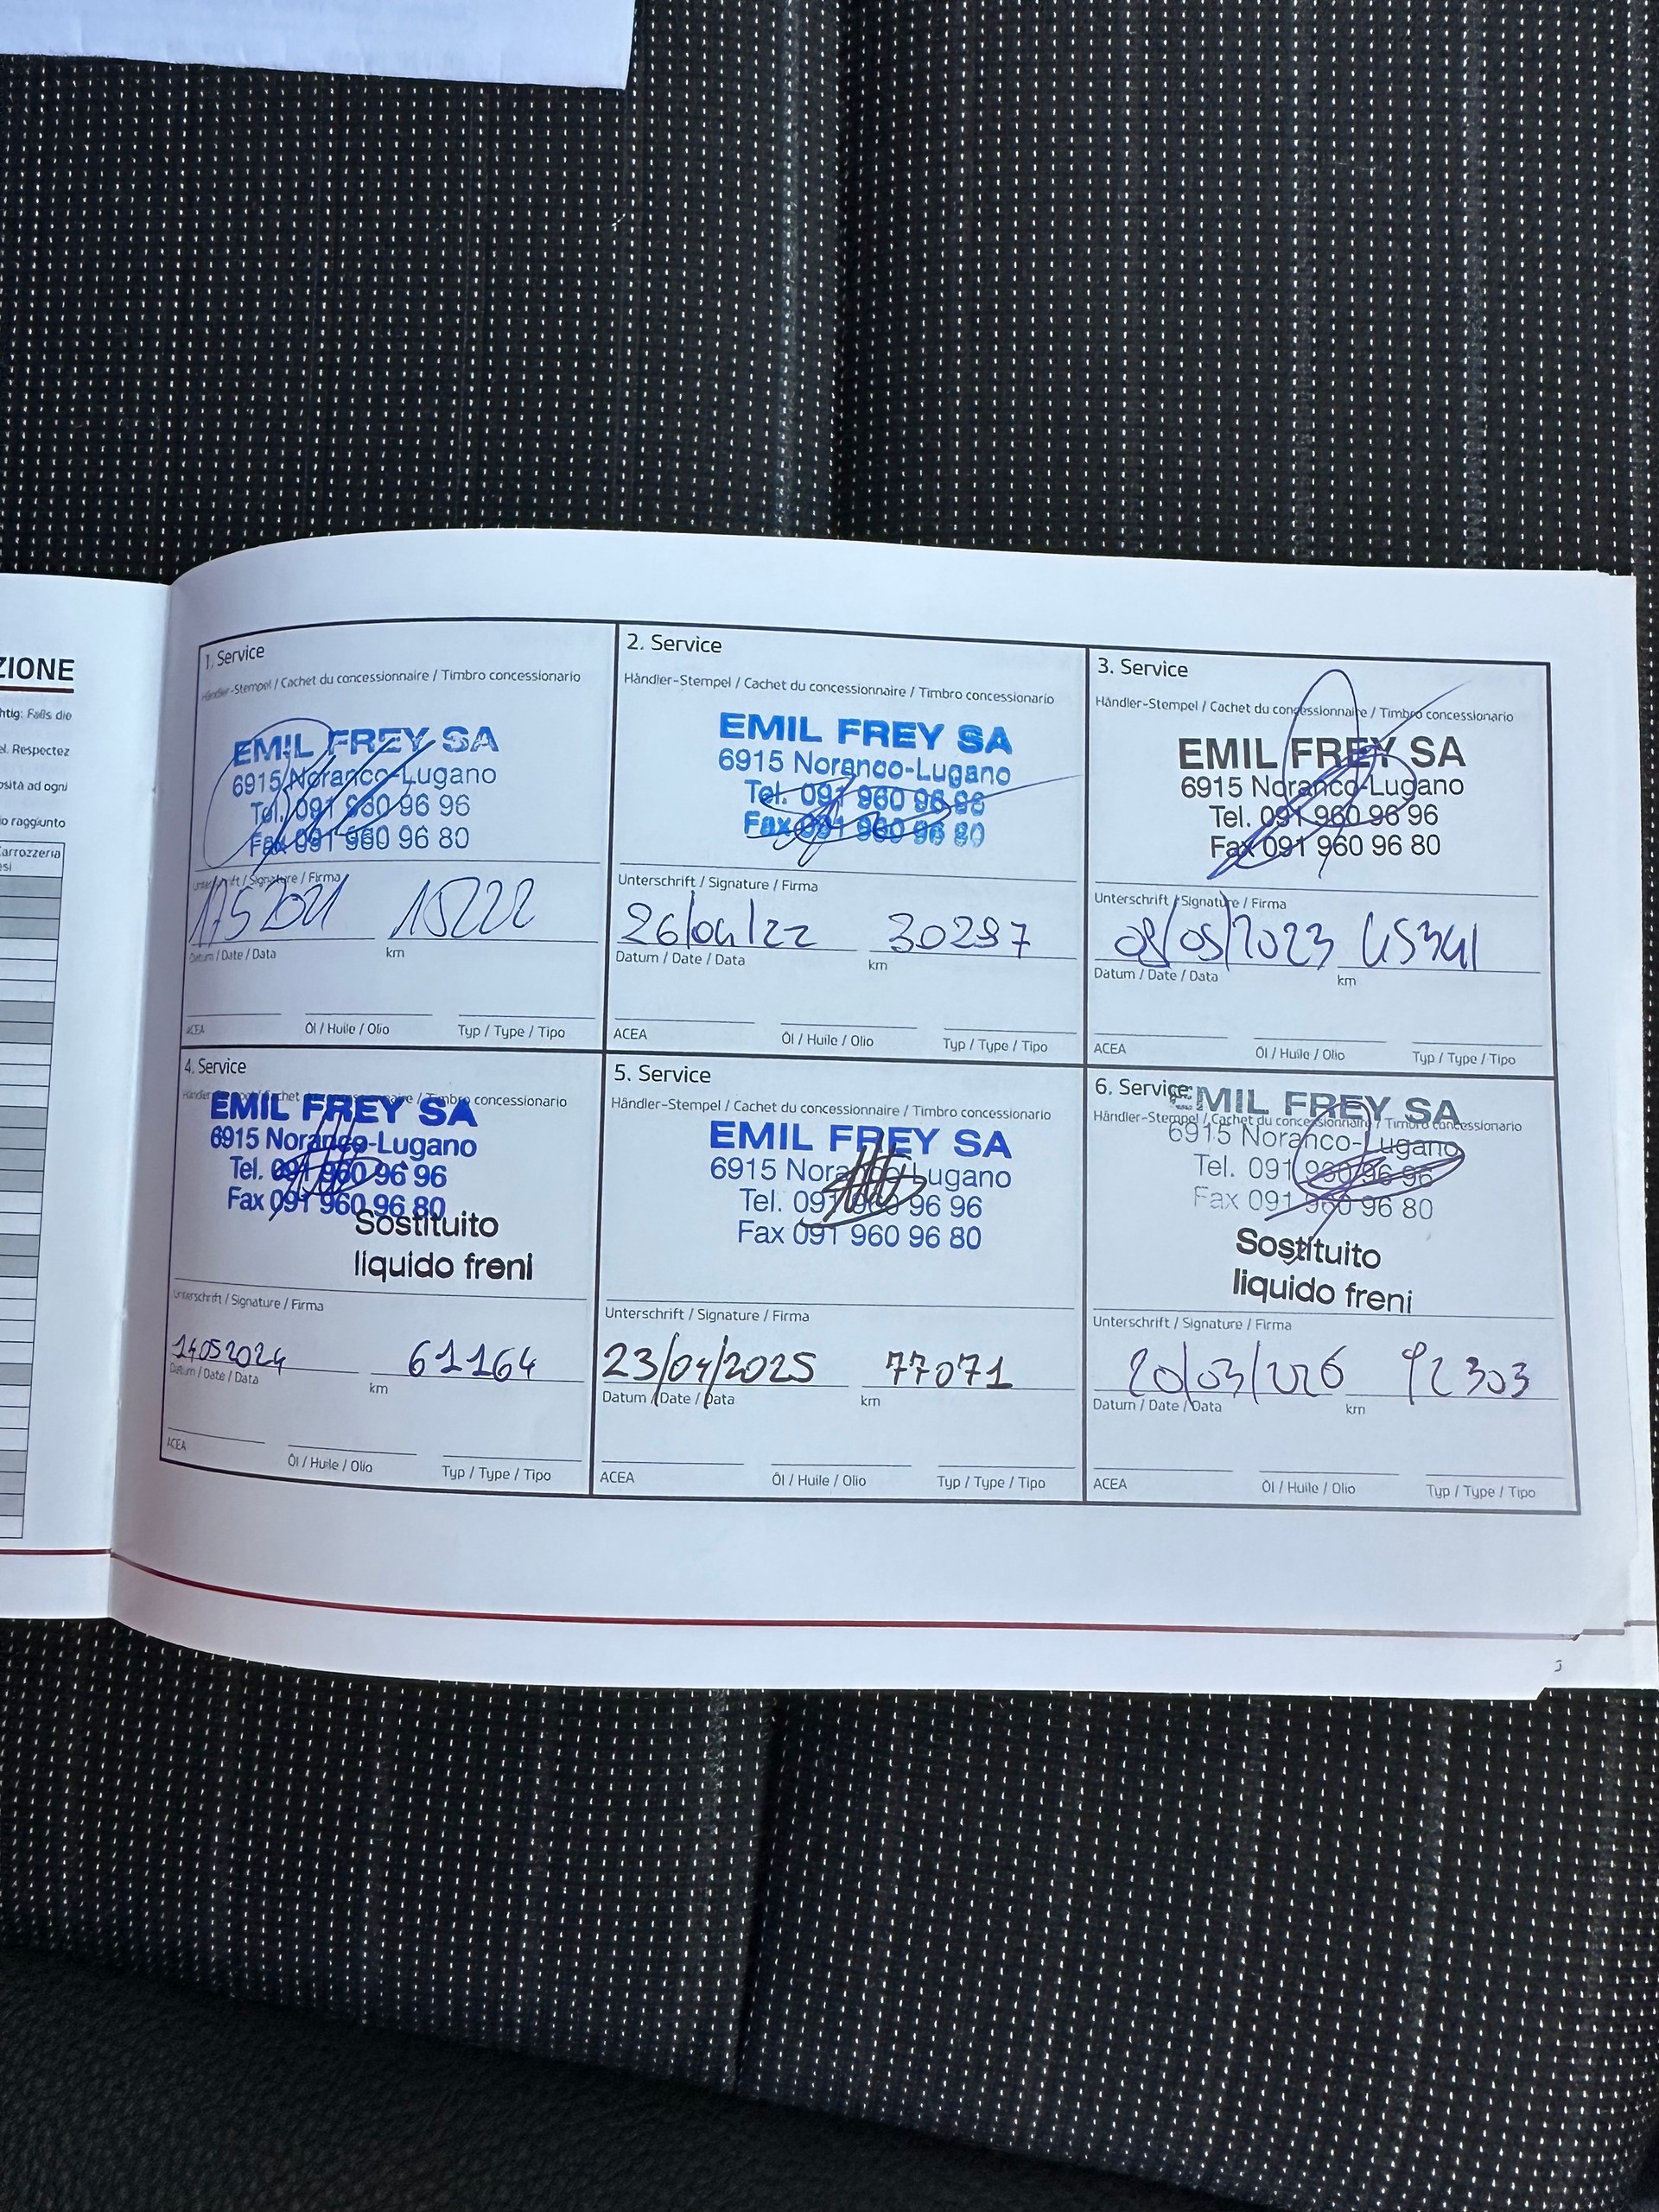 ZIONE
htig: Falls die
el. Respectez
osità ad ogni
o raggiunto
Carrozzeria
si
1. Service
Händler-Stempel / Cachet du concessionnaire / Timbro concessionario
EMIL FREY SA
6915 Noranco-Lugano
Tel. 091 960 96 96
Fax 091 960 96 80
Unterschrift / Signature / Firma
17 5 2021 15222
Datum / Date / Data km
ACEA Öl / Huile / Olio Typ / Type / Tipo
2. Service
Händler-Stempel / Cachet du concessionnaire / Timbro concessionario
EMIL FREY SA
6915 Noranco-Lugano
Tel. 091 960 96 96
Fax 091 960 96 80
Unterschrift / Signature / Firma
26/04/22 30297
Datum / Date / Data km
ACEA Öl / Huile / Olio Typ / Type / Tipo
3. Service
Händler-Stempel / Cachet du concessionnaire / Timbro concessionario
EMIL FREY SA
6915 Noranco-Lugano
Tel. 091 960 96 96
Fax 091 960 96 80
Unterschrift / Signature / Firma
08/05/2023 45341
Datum / Date / Data km
ACEA Öl / Huile / Olio Typ / Type / Tipo
4. Service
Händler-Stempel / Cachet du concessionnaire / Timbro concessionario
EMIL FREY SA
6915 Noranco-Lugano
Tel. 091 960 96 96
Fax 091 960 96 80
Sostituito
liquido freni
Unterschrift / Signature / Firma
14052024 61164
Datum / Date / Data km
ACEA Öl / Huile / Olio Typ / Type / Tipo
5. Service
Händler-Stempel / Cachet du concessionnaire / Timbro concessionario
EMIL FREY SA
6915 Noranco-Lugano
Tel. 091 960 96 96
Fax 091 960 96 80
Unterschrift / Signature / Firma
23/04/2025 77071
Datum / Date / Data km
ACEA Öl / Huile / Olio Typ / Type / Tipo
6. Service
EMIL FREY SA
Händler-Stempel / Cachet du concessionnaire / Timbro concessionario
6915 Noranco-Lugano
Tel. 091 960 96 96
Fax 091 960 96 80
Sostituito
liquido freni
Unterschrift / Signature / Firma
20/03/2026 92303
Datum / Date / Data km
ACEA Öl / Huile / Olio Typ / Type / Tipo